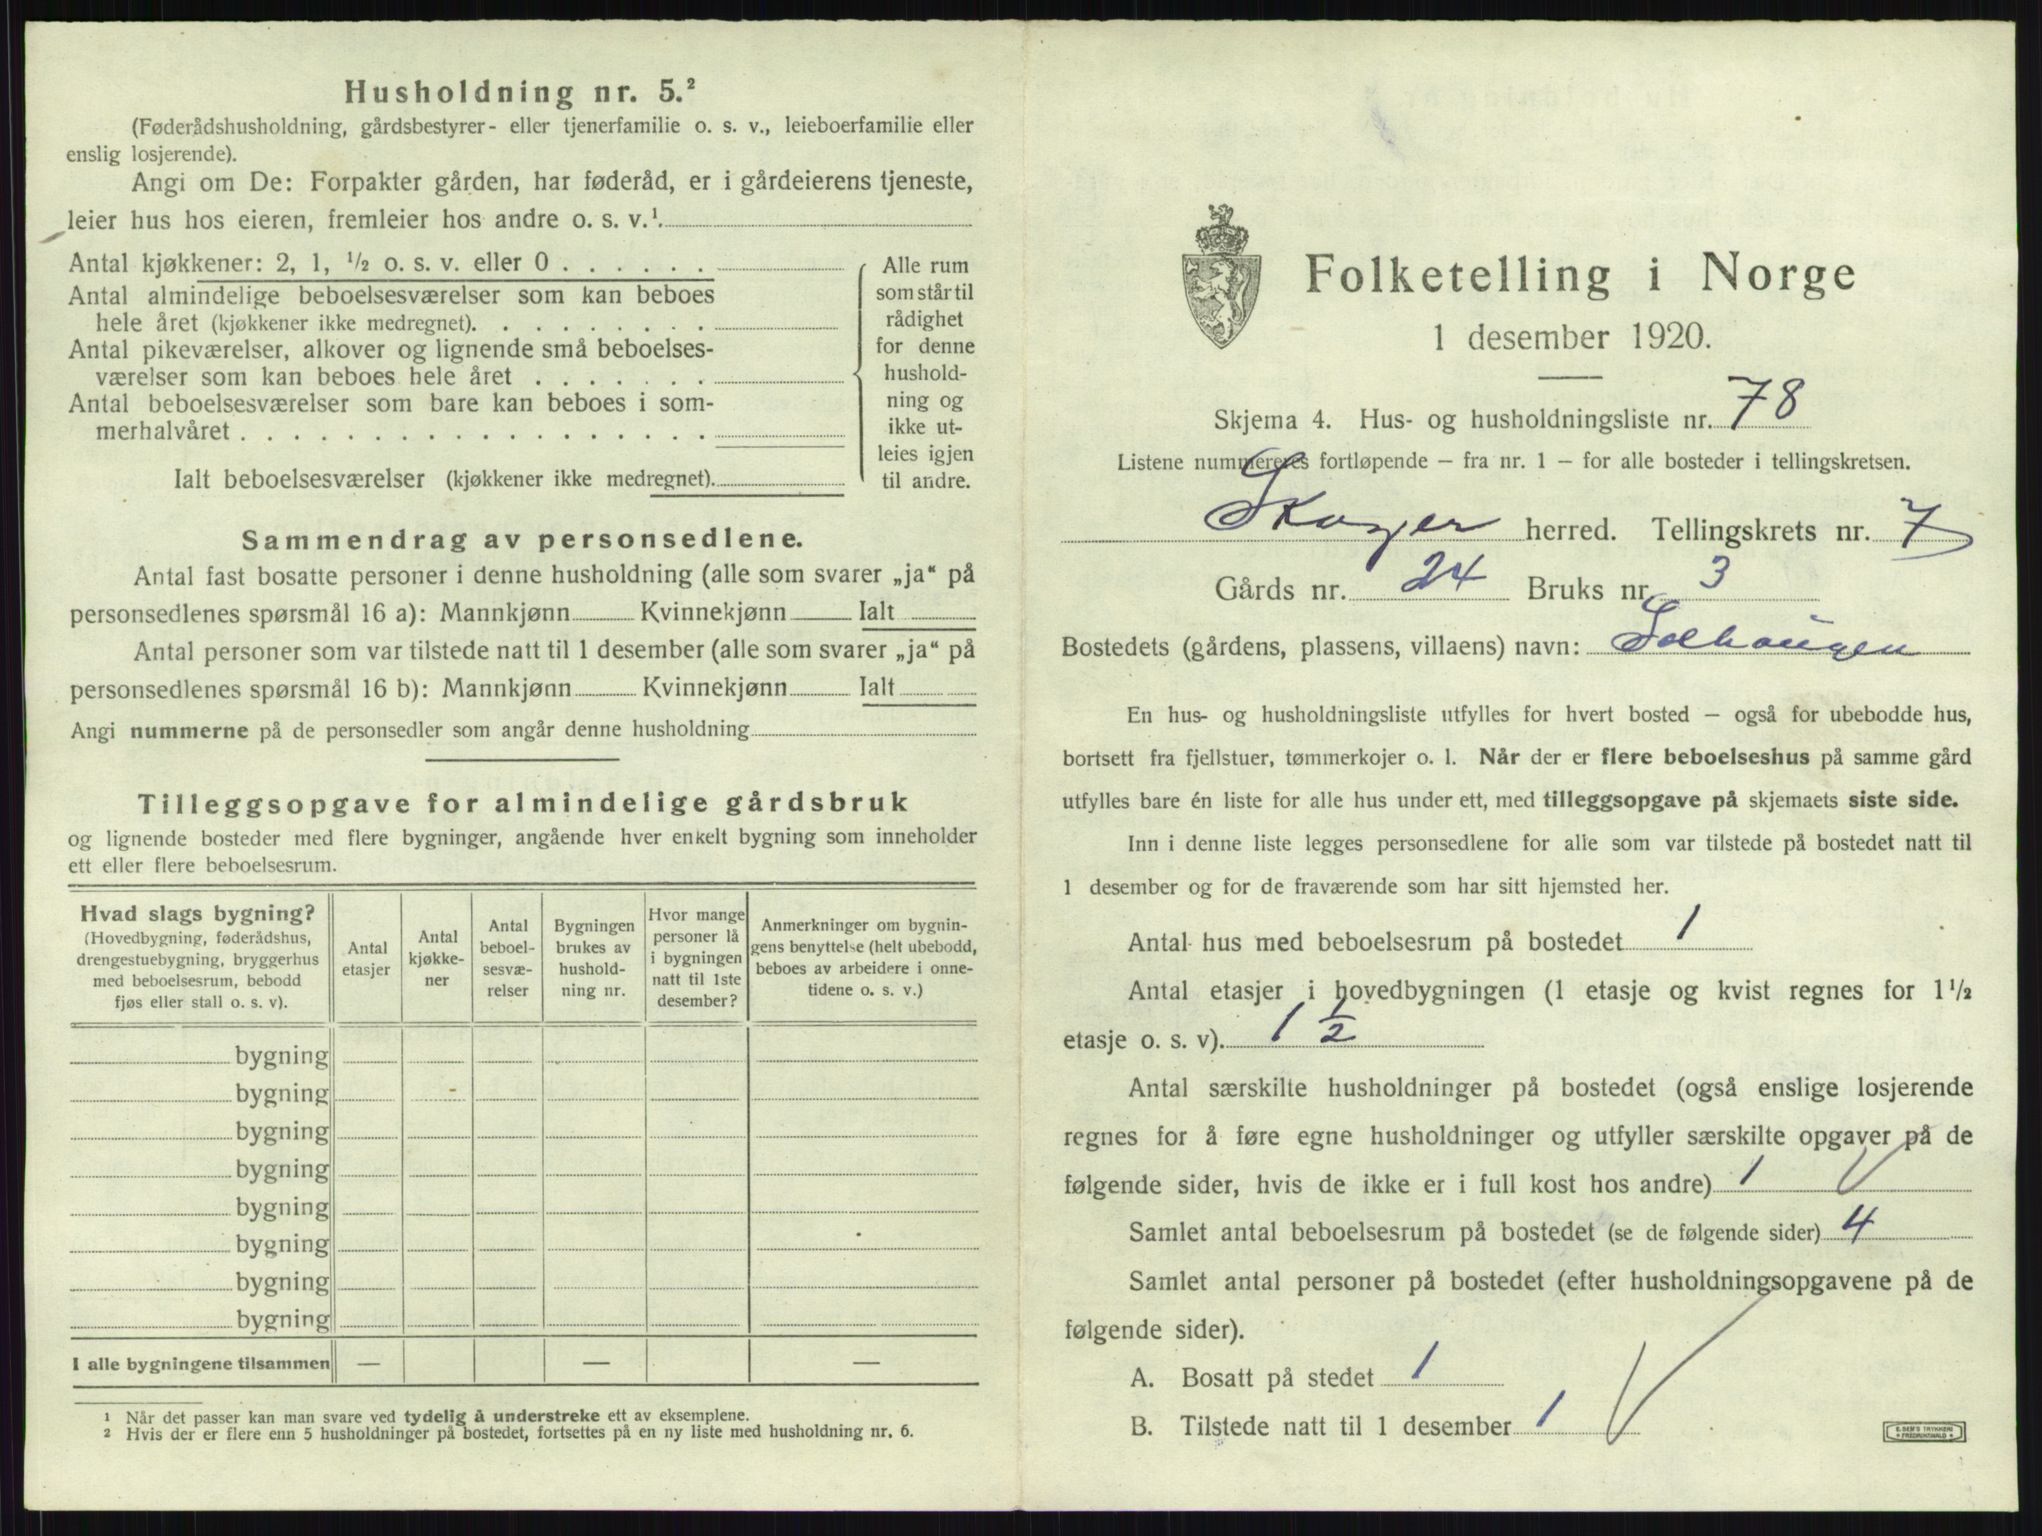 Husholdning nr. 5.²
(Føderådshusholdning, gårdsbestyrer- eller tjenerfamilie o. s. v., leieboerfamilie eller
enslig losjerende).
Angi om De: Forpakter gården, har føderåd, er i gårdeierens tjeneste,
leier hus hos eieren, fremleier hos andre o. s. v.¹.
Antal kjøkkener: 2, 1, ½ o. s. v. eller 0 . . . . . .
Antal almindelige beboelsesværelser som kan beboes
hele året (kjøkkener ikke medregnet). . . . . . . . .
Antal pikeværelser, alkover og lignende små beboelses-
værelser som kan beboes hele året . . . . . . .
Antal beboelsesværelser som bare kan beboes i som-
merhalvåret . . . . . . . . . . . . . . . . . .
Ialt beboelsesværelser (kjøkkener ikke medregnet).
Alle rum
som står til
rådighet
for denne
hushold-
ning og
ikke ut-
leies igjen
til andre.
Sammendrag av personsedlene.
Antal fast bosatte personer i denne husholdning (alle som svarer „ja“ på
personsedlenes spørsmål 16 a): Mannkjønn Kvinnekjønn Ialt
Antal personer som var tilstede natt til 1 desember (alle som svarer „ja“ på
personsedlenes spørsmål 16 b): Mannkjønn Kvinnekjønn Ialt
Angi nummerne på de personsedler som angår denne husholdning
Tilleggsopgave for almindelige gårdsbruk
og lignende bosteder med flere bygninger, angående hver enkelt bygning som inneholder
ett eller flere beboelsesrum.
Hvad slags bygning?
(Hovedbygning, føderådshus,
drengestuebygning, bryggerhus
med beboelsesrum, bebodd
fjøs eller stall o. s. v).
Antal
etasjer
Antal
kjøkke-
ner
Antal
beboel-
sesvæ-
relser
Bygningen
brukes av
hushold-
ning nr.
Hvor mange
personer lå
i bygningen
natt til 1ste
desember?
Anmerkninger om bygnin-
gens benyttelse (helt ubebodd,
beboes av arbeidere i onne-
tidene o. s. v.)
bygning
bygning
bygning
bygning
bygning
bygning
bygning
bygning
I alle bygningene tilsammen — — —
¹ Når det passer kan man svare ved tydelig å understreke ett av eksemplene.
² Hvis der er flere enn 5 husholdninger på bostedet, fortsettes på en ny liste med husholdning nr. 6.
Folketelling i Norge
1 desember 1920.
Skjema 4. Hus- og husholdningsliste nr. 78
Listene nummereres fortløpende – fra nr. 1 – for alle bosteder i tellingskretsen.
Skoger herred. Tellingskrets nr. 7
Gårds nr. 24 Bruks nr. 3
Bostedets (gårdens, plassens, villaens) navn: Solhaugen
En hus- og husholdningsliste utfylles for hvert bosted – også for ubebodde hus,
bortsett fra fjellstuer, tømmerkojer o. l. Når der er flere beboelseshus på samme gård
utfylles bare én liste for alle hus under ett, med tilleggsopgave på skjemaets siste side.
Inn i denne liste legges personsedlene for alle som var tilstede på bostedet natt til
1 desember og for de fraværende som har sitt hjemsted her.
Antal hus med beboelsesrum på bostedet 1
Antal etasjer i hovedbygningen (1 etasje og kvist regnes for 1½
etasje o. s. v). 1 ½
Antal særskilte husholdninger på bostedet (også enslige losjerende
regnes for å føre egne husholdninger og utfyller særskilte opgaver på de
følgende sider, hvis de ikke er i full kost hos andre) 1
Samlet antal beboelsesrum på bostedet (se de følgende sider) 4
Samlet antal personer på bostedet (efter husholdningsopgavene på de
følgende sider).
A. Bosatt på stedet 1
B. Tilstede natt til 1 desember 1